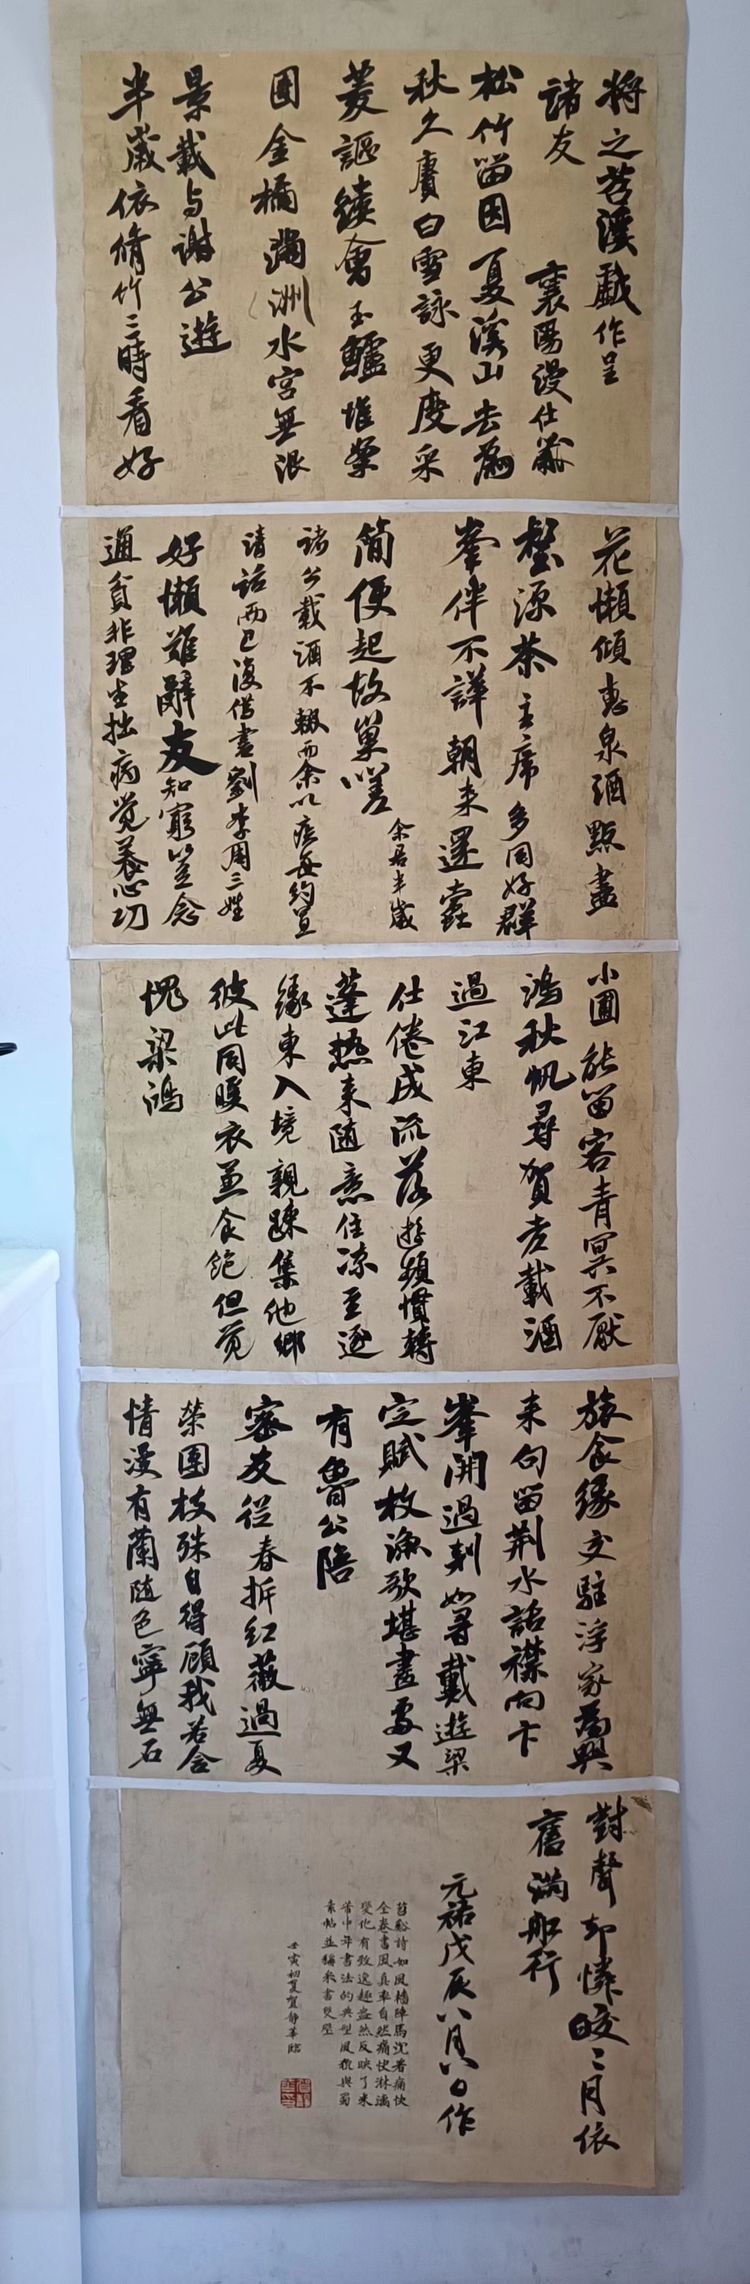 將之苕溪戲作呈
諸友
襄陽漫仕黻
松竹留因夏溪山去為
秋久賡白雪詠更度采
菱謳縷會玉鱸堆案
團金橘滿洲水宮無限
景載与謝公遊
半歲依脩竹三時看好
花懶傾惠泉酒點盡
壑源茶主席多同好群
峯伴不譁朝來還蠹
簡便起故巢嗟
余居半歲
諸公載酒不輟而余以疾每約置
膳清話而已復借書劉李周三姓
好懶難辭友知窮豈念
通貧非理生拙病覺養心功
小圃能留客青冥不厭
鴻秋帆尋賀老載酒
過江東
仕倦成流落遊頻慣轉
蓬熱來隨意住涼至逐
緣東入境親踈集他鄉
彼此同暖衣並食飽但覺
愧梁鴻
旅食緣交駐浮家為興
來句留荆水話襟向卞
峯開過剡如尋戴遊梁
定賦枚漁歌堪畫處又
有魯公陪
密友從春拆紅薇過夏
榮團枝殊自得顧我若含
情漫有蘭隨色寧無石
對聲却憐皎〻月依
舊滿船行
元祐戊辰八月八日作
苕谿詩如風檣陣馬沈着痛快
全卷書風真率自然痛快淋漓
變化有致逸趣盎然反映了米
芾中年書法的典型風貌與蜀
素帖並稱米書雙壁
壬寅初夏賀靜華臨